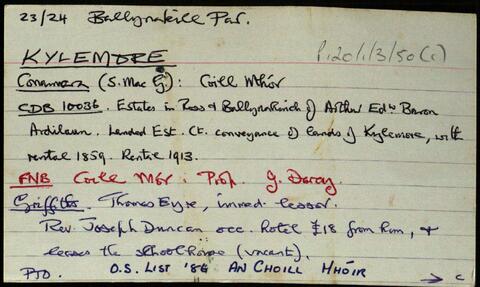 23/24 Ballynakill Par.
P120/1/3/50(c)
KYLEMORE
Connemara (S. Mac G): Coill Mhór
CDB 10036. Estates in Ross & Ballynahinch of Arthur Edw Baron
Ardilaun. Landed Est. Ct. conveyance of lands of Kylemore, with
rental 1859. Rental 1913.
FNB Coill Mór: Prop. J. Darcy
Griffiths. Thomas Eyre, immed. lessor.
Rev. Joseph Duncan occ. hotel £18 from him, &
leases the schoolhouse (vacant).
PTO. O.S. LIST '86 AN CHOILL MHÓIR
→ C